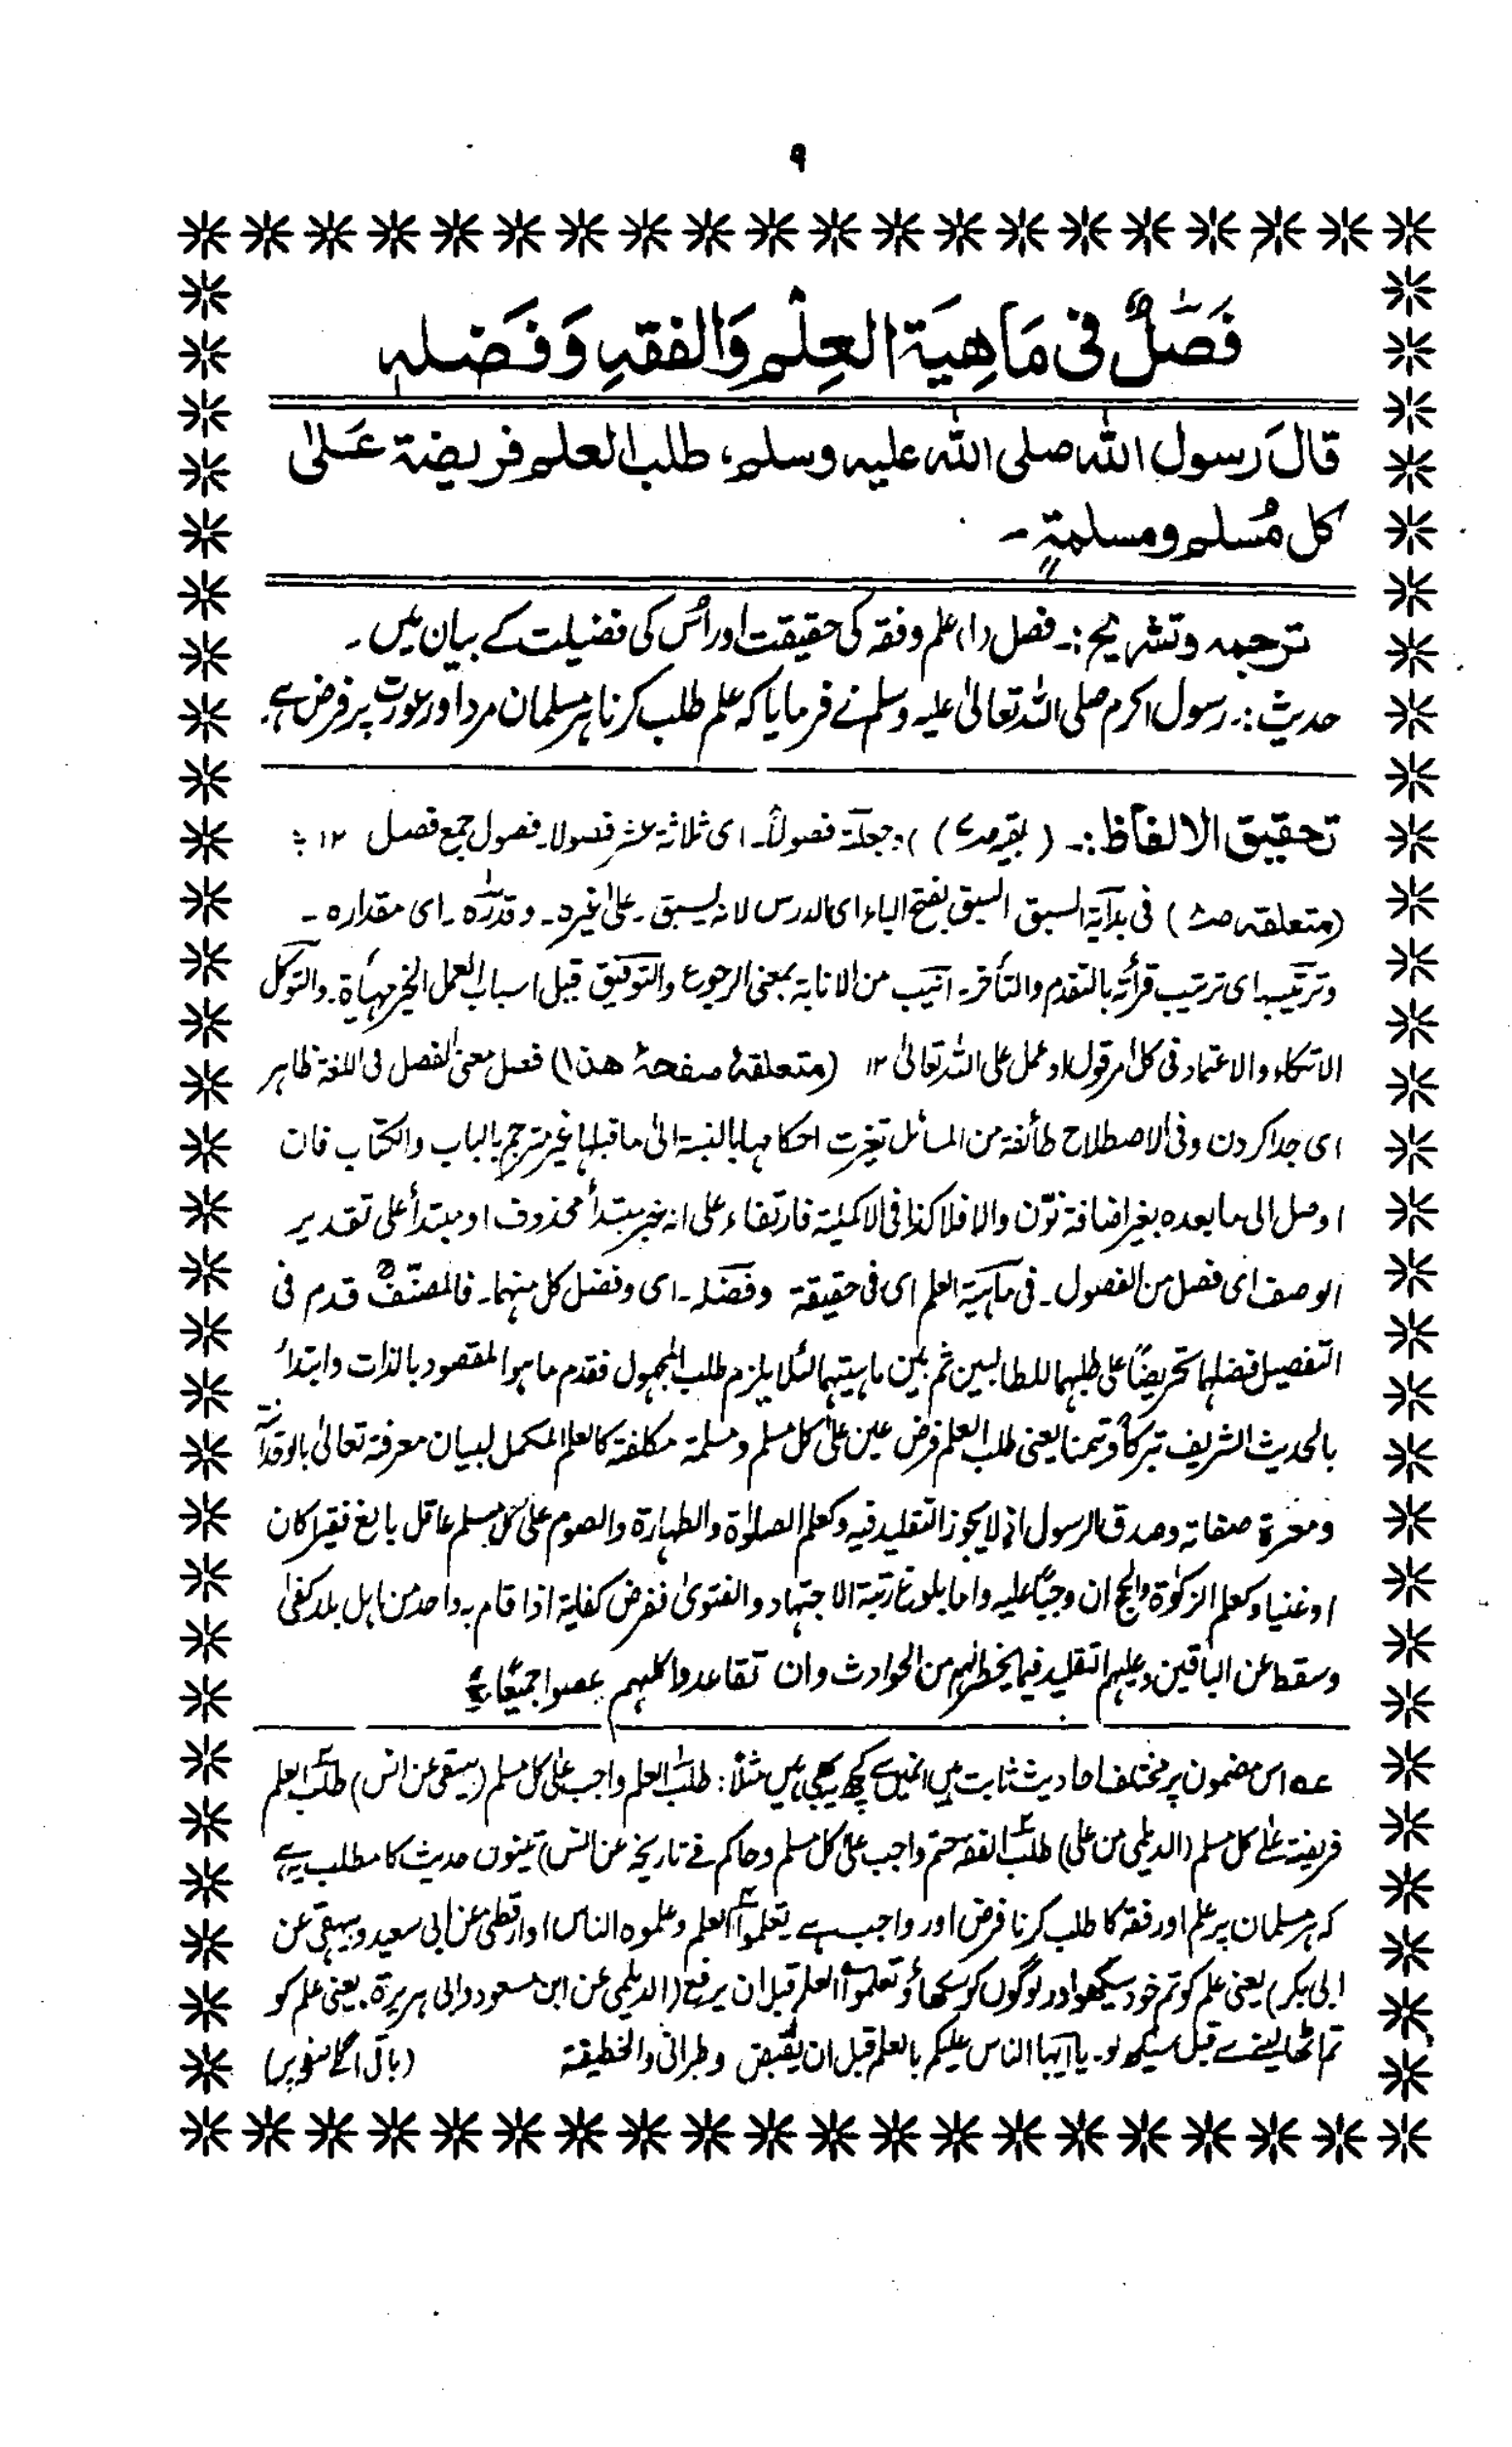 ۹
فَصْلٌ فی مَاهِیَۃ العِلْمِ وَالفقہِ وَفَضلہٖ
قالَ رَسول اللّٰہ صلی اللّٰہ علیہ وسلم، طلب العلم فریضۃ عَلیٰ
کل مُسلم ومسلمۃٍ ۔
ترجمہ وتشریح :۔ فصل (۱) علم وفقہ کی حقیقت اور اُس کی فضیلت کے بیان میں ۔
حدیث :۔ رسول اکرم صلی اللہ تعالیٰ علیہ وسلم نے فرمایا کہ علم طلب کرنا ہر مسلمان مرد اور عورت پر فرض ہے۔
تحقیق الالفاظ :۔ ( بقیہ ) وجعلتہ فصولاً۔ ای ثلاثۃ عشر فصولا۔ فصول جمع فصل ۱۲
(متعلقہ ص۸) فی بدایۃ السبق السبق بفتح الباء ای الدرس لانہ یسبق ۔ علیٰ غیرہ ۔ وقدرہ ۔ ای مقدارہ ۔
وترتیبہ ای ترتیب قرأتہ بالتقدم والتأخر۔ انیب من الانابۃ بمعنی الرجوع والتوفیق قیل اسباب العمل الخیر مہیأۃ۔ والتوکل
الاتکاء والاعتماد فی کل امر قول او عمل علی اللہ تعالیٰ ۱۲ (متعلقۂ صفحۂ ھذا) فصل معنی الفصل فی اللغۃ ظاہر
ای جدا کردن وفی الاصطلاح طائفۃ من المسائل تغیرت احکامہا بالنسبۃ الیٰ ما قبلہا غیر مترجم بالباب والکتاب فان
اوصل الی ما بعدہ بغیر اضافۃ نوّن والا فلا کذا فی الاکملیۃ فارتفاء علی انہ خبر مبتدأ محذوف او مبتدأ علی تقدیر
الوصف ای فصل من الفصول ۔ فی ماہیۃ العلم ای فی حقیقۃ وفضلہ ۔ ای وفضل کل منہما ۔ فالمصنّفؒ قدم فی
التفصیل فضلہا تحریضًا علی طلبہما للطالبین ثم بین ماہیتہما لئلا یلزم طلب المجہول فقدم ما ہوا لمقصود بالذات وابتدأ
بالحدیث الشریف تبرکًا وتیمنا یعنی طلب العلم فرض عین علیٰ کل مسلم ومسلمۃ مکلفۃ کالعلم المکمل لبیان معرفۃ تعالیٰ
ومعرۃ صفاتہ وصدق الرسول اذ لا یجوز التقلید فیہ وکعلم الصلوٰۃ والطہارۃ والصوم علی کل مسلم عاقل بالغ فقیرا کان
او غنیا وکعلم الزکوٰۃ والحج ان وجبًا علیہ واما بلوغ رتبۃ الاجتہاد والفتویٰ ففرض کفایۃ اذا قام بہ واحد من اہل بلد کفیٰ
وسقط عن الباقین وعلیہم التقلید فیما یخطر لہم من الحوادث وان تقاعدوا کلہم عصوا جمیعًا
عہ اس مضمون پر مختلف احادیث ثابت ہیں انمیں سے کچھ یہ بھی ہیں مثلاً : طلب العلم واجب علیٰ کل مسلم (بیہقی عن انس) طلب العلم
فریضۃ علیٰ کل مسلم (الدیلمی من علی) طلب الفقہ حتم واجب علیٰ کل مسلم وحاکم فے تاریخہ عن انس) تینوں حدیث کا مطلب یہ ہے
کہ ہر مسلمان پر علم اور فقہ کا طلب کرنا فرض اور واجب ہے تعلموا العلم وعلموہ الناس (دارقطنی عن ابی سعید وبیہقی عن
ابی بکر) یعنی علم کو تم خود سیکھو اور لوگوں کو سکھاؤ تعلموا العلم قبل ان یرفع (الدیلمی عن ابن مسعود وابی ہریرۃ۔ یعنی علم کو
تم اٹھا لینے سے قبل سیکھ لو۔ یا ایہا الناس علیکم بالعلم قبل ان یقبض وطبرانی والخطیفۃ (باقی اگلے صفحہ پر)